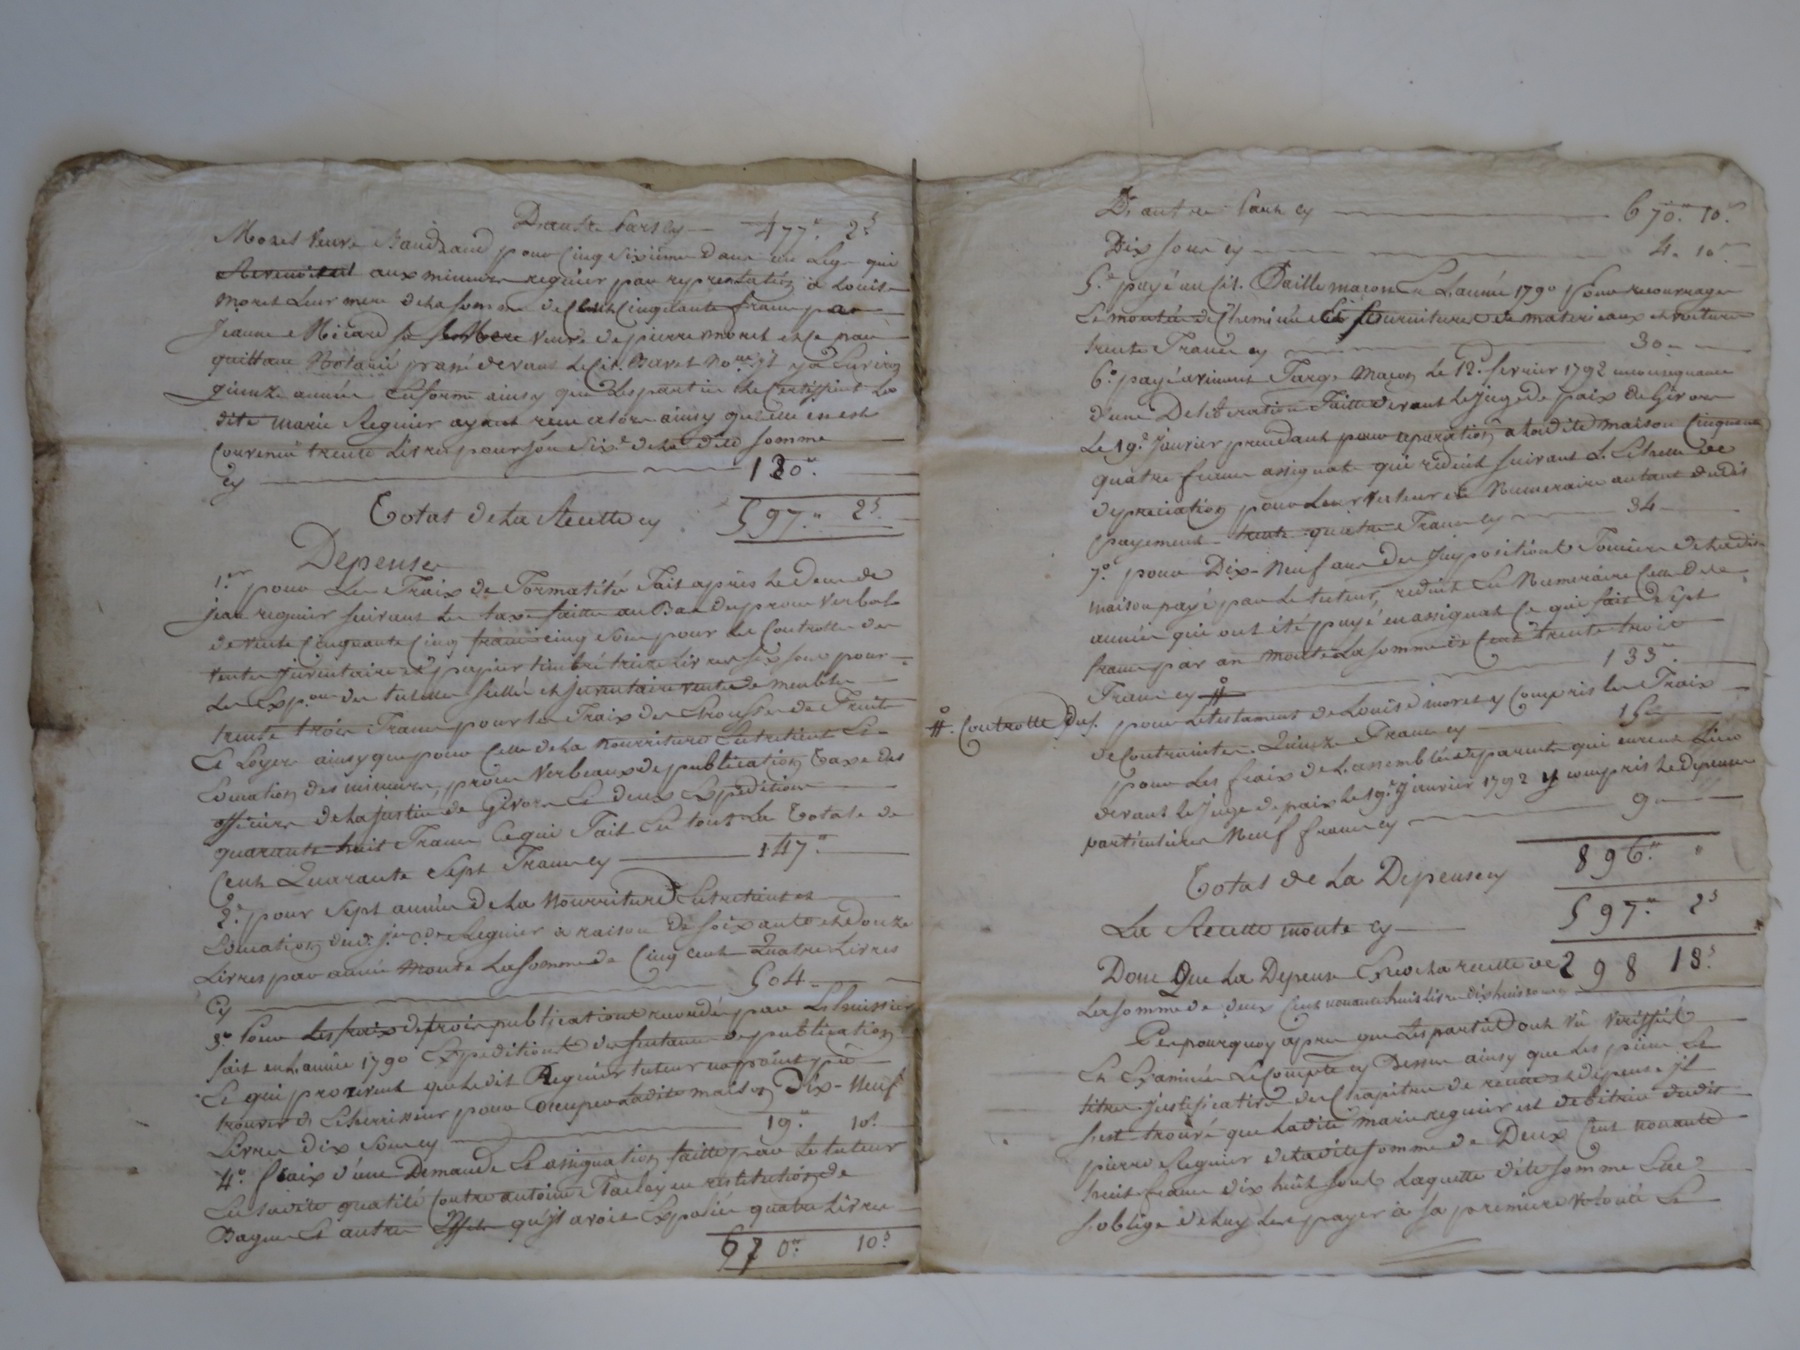 D'autre part cy 477.# 2.s
Moret veuve Baudrand pour cinq sixième dans un legs qui
aux mineurs reguier par representation de Louise
moret Leur mere de la somme de Cent Cinquante francs par
Jeanne veuve de pierre moret et ce par
quittance Notarié passé devant le Cit. no.re
quinze année en forme ainsy que Les parties le Certiffient La
dite marie Reguier ayant ainsy qu'elle en est
Convenu trente Livres pour son six.e de la dite somme
cy 120.#
Total de La Recette cy 597.# 2.s
Depense
1.er pour Les Fraix de Formalité Fait après Le Deces de
jean reguier suivant La taxe faitte au Bas du proces verbal
de vente Cinquante Cinq francs cinq sous pour Le Controlle des
vente Inventaire et papier timbré treize Livres six sous pour
Les Exp.ons des tutelle scellé et Inventaire vente de meubles
trente trois Francs pour Les Fraix des de Fruits
Et Loyers ainsy que pour Celle de La nourriture Entretient Et
Education des mineurs, proces verbeaux de publication Taxe des
officiers de La justice de Givors Et deux Expeditions
quarante huit Francs Ce qui Fait En tout La Totale de
Cent Quarante Sept Francs cy 147.#
2.e pour Sept année de La Nourriture Entretient et
Education dud. Reguier a raison de soixante et douze
Livres par année monte La somme de Cinq cent Quatre Livres
cy 504
3.e pour Les fraix de trois publications par L'huissier
fait en L'année 1790 Expeditions des sentences de publication
Ce qui provient que Le dit Reguier tuteur na point pu
trouver d'Encherisseur pour occuper La dite maison Dix-Neuf
Livres dix Sous cy 19.# 10.s
4.o fraix d'une Demande Et assignation faitte par Le tuteur
En sa dite qualité Contre antoine en restitution de
Bagues Et autres Effets qu'il avoit quatre Livres
670.# 10.s
D'autre part cy 670.# 10.s
Dix sous cy 4. 10.s
5.e payé au Cit. Paille macon En L'année 1790 pour
Le de Cheminée Et fournitures de materieaux et voiture
trente Francs cy 30
6.o payé a vincent Farge Macon Le 12.e fevrier 1792 en consequence
d'une Deliberation Faitte devant Le juge de paix de Givors
Le 19.e Janvier precedant pour reparation a La dite maison Cinquante
quatre francs assignat qui reduit suivant L'Echelle de
depreciation pour Leur valeur en Numeraire au tant dudit
payement trente quatre Francs cy 34
7.o pour Dix-Neuf ans des Impositions Foncière de La dite
maison payé par Le tuteur, reduit En Numeraire Celle De
année qui ont été payé en assignat Ce qui fait Sept
francs par an monte La somme de Cent trente trois
Francs cy # 133.#
#.o Controlle Du S. pour Le testament de Louise moret y Compris Les Fraix
de Contrainte. Quinze Francs cy 15
pour Les fraix de L'assemblée de parents qui eurent Lieu
devant Le Juge de paix Le 19.e Janvier 1792 y compris Le depenses
particulieres Neuf francs cy 9
Total de La Depense cy 896.# "
La Recette monte cy 597.# 2.s
Donc Que La Depense Excede La recette de 298 18.s
La somme de deux Cent nonante huit Livres dix huit sous
C'est pourquoy apres que Les parties ont vû veriffié
Et Examinée Le Compte cy Dessus ainsy que Les pieces Et
titres justificatives des Chapitres de recettes et depenses il
s'est trouvé que La dite marie reguier est debitrice dudit
pierre Reguier de La dite somme de Deux Cent nonante
huit francs dix huit sous Laquelle dite somme Elle
s'oblige de Luy Les payer à sa premiere volonté Et